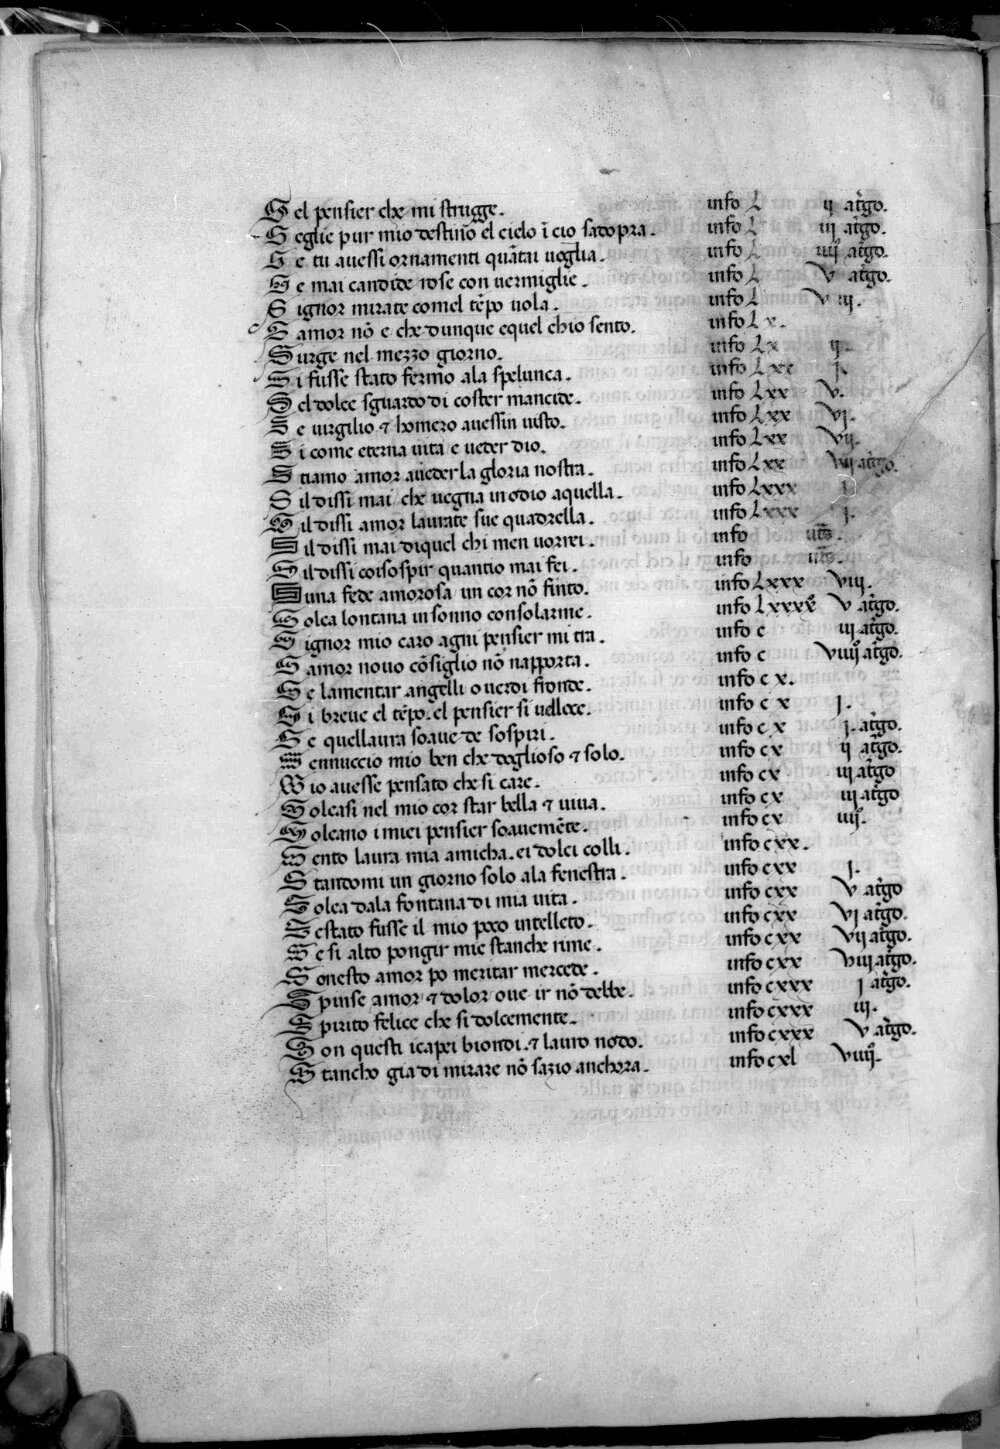 S el pensier che mi strugge. info L ii at̃go.
S eglie pur mio destino el cielo ĩ cio sadopra. info L iii at̃go.
S e tu avessi ornamenti quãtai voglia. info L iiii at̃go.
S e mai candide rose con vermiglie. info L v at̃go.
S ignor mirate comel tẽpo vola. info L viii.
S amor nõ e che dunque equel chio sento. info L x.
S urge nel mezzo giorno. info L x ii.
S i fusse stato fermo ala spelunca. info L xx i.
S el dolce sguardo di coster mancide. info L xx v.
S e virgilio ⁊ homero avessin visto. info L xx vi.
S i come eterna vita e veder dio. info L xx vii.
S tiamo amor aveder la gloria nostra. info L xx viii at̃go.
S il dissi mai che vegna in odio aquella. info L xxx i
S il dissi amor laurate sue quadrella. info L xxx i.
S il dissi mai di quel chi men vorrei. info
S il dissi coi sospir quantio mai fei. info
S una fede amorosa un cor nõ finto. info L xxx viii.
S olea lontana in sonno consolarme. info L xxxx v at̃go.
S ignor mio caro agni pensier mi tra. info c iii at̃go.
S amor novo cõsiglio nõ napporta. info c viiii at̃go.
S e lamentar angelli o verdi fronde. info c x.
S i breve el tẽpo. el pensier si velloce. info c x i.
S e quellaura soave de sospiri. info c x i. at̃go.
S ennuccio mio ben che doglioso ⁊ solo. info c x ii at̃go.
S io avesse pensato che si care. info c x iii at̃go
S oleasi nel mio cor star bella ⁊ viva. info c x iii at̃go
S oleano i miei pensier soavemẽte. info c x iiii.
S ento laura mia amicha. ei dolci colli. info c xx.
S tandomi un giorno solo ala fenestra. info c xx i.
S olea dala fontana di mia vita. info c xx v at̃go
S estato fusse il mio poco intelleto. info c xx vi at̃go.
S e si alto pongir mie stanche rime. info c xx vii at̃go.
S onesto amor po meritar mercede. info c xx viii at̃go.
S pinse amor ⁊ dolor ove ir nõ debbe. info c xxx i at̃go.
S pirito felice che si dolcemente. info c xxx iii.
S on questi icapei biondi. ⁊ lauro nodo. info c xxx v at̃go.
S tancho gia di mirare nõ sazio anchora. info c xl viiii.